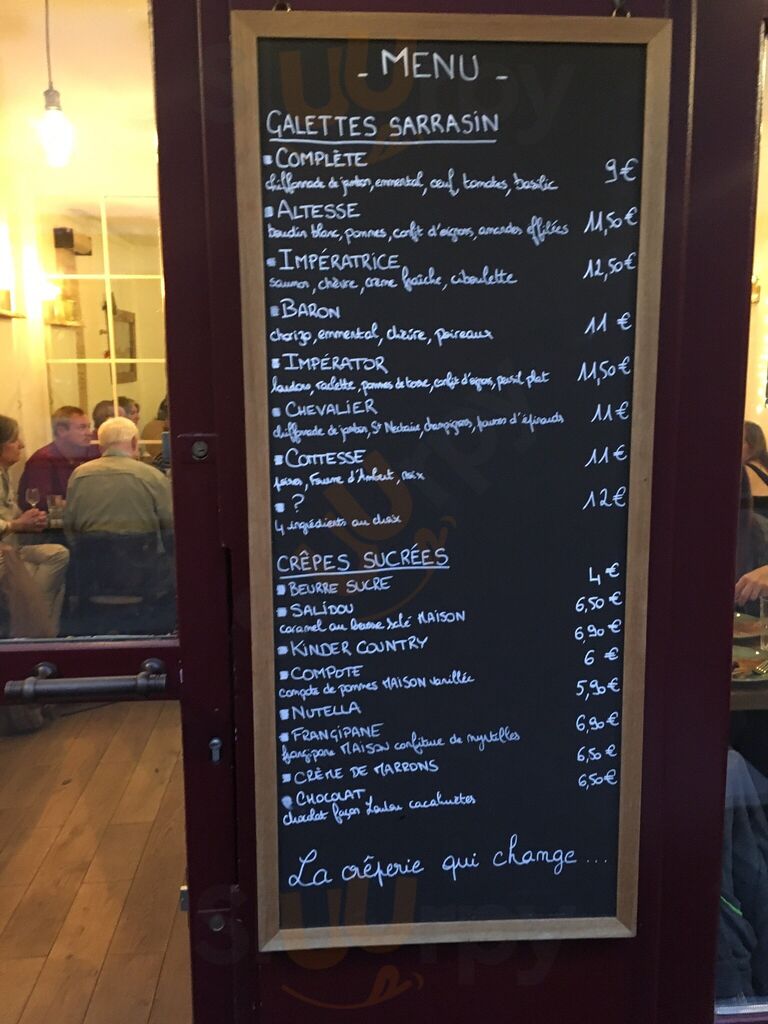 - MENU -
GALETTES SARRASIN
COMPLÈTE 9€
chiffonnade de jambon, emmental, œuf, tomates, basilic
ALTESSE 11,50€
boudin blanc, pommes, confit d'oignons, amandes effilées
IMPÉRATRICE 12,50€
saumon, chèvre, crème fraîche, ciboulette
BARON 11 €
chorizo, emmental, chèvre, poireaux
IMPÉRATOR 11,50€
lardons, raclette, pommes de terre, confit d'oignons, persil plat
CHEVALIER 11€
chiffonnade de jambon, St Nectaire, champignons, pousses d'épinards
COMTESSE 11€
poires, Fourme d'Ambert, noix
? 12€
4 ingrédients au choix
CRÊPES SUCRÉES
BEURRE SUCRE 4 €
SALIDOU 6,50€
caramel au beurre salé MAISON
KINDER COUNTRY 6,90€
COMPOTE 6 €
compote de pommes MAISON vanillée
NUTELLA 5,90€
FRANGIPANE 6,90€
frangipane MAISON confiture de myrtilles
CRÈME DE MARRONS 6,50€
CHOCOLAT 6,50€
chocolat façon Loulou cacahuètes
La crêperie qui change...